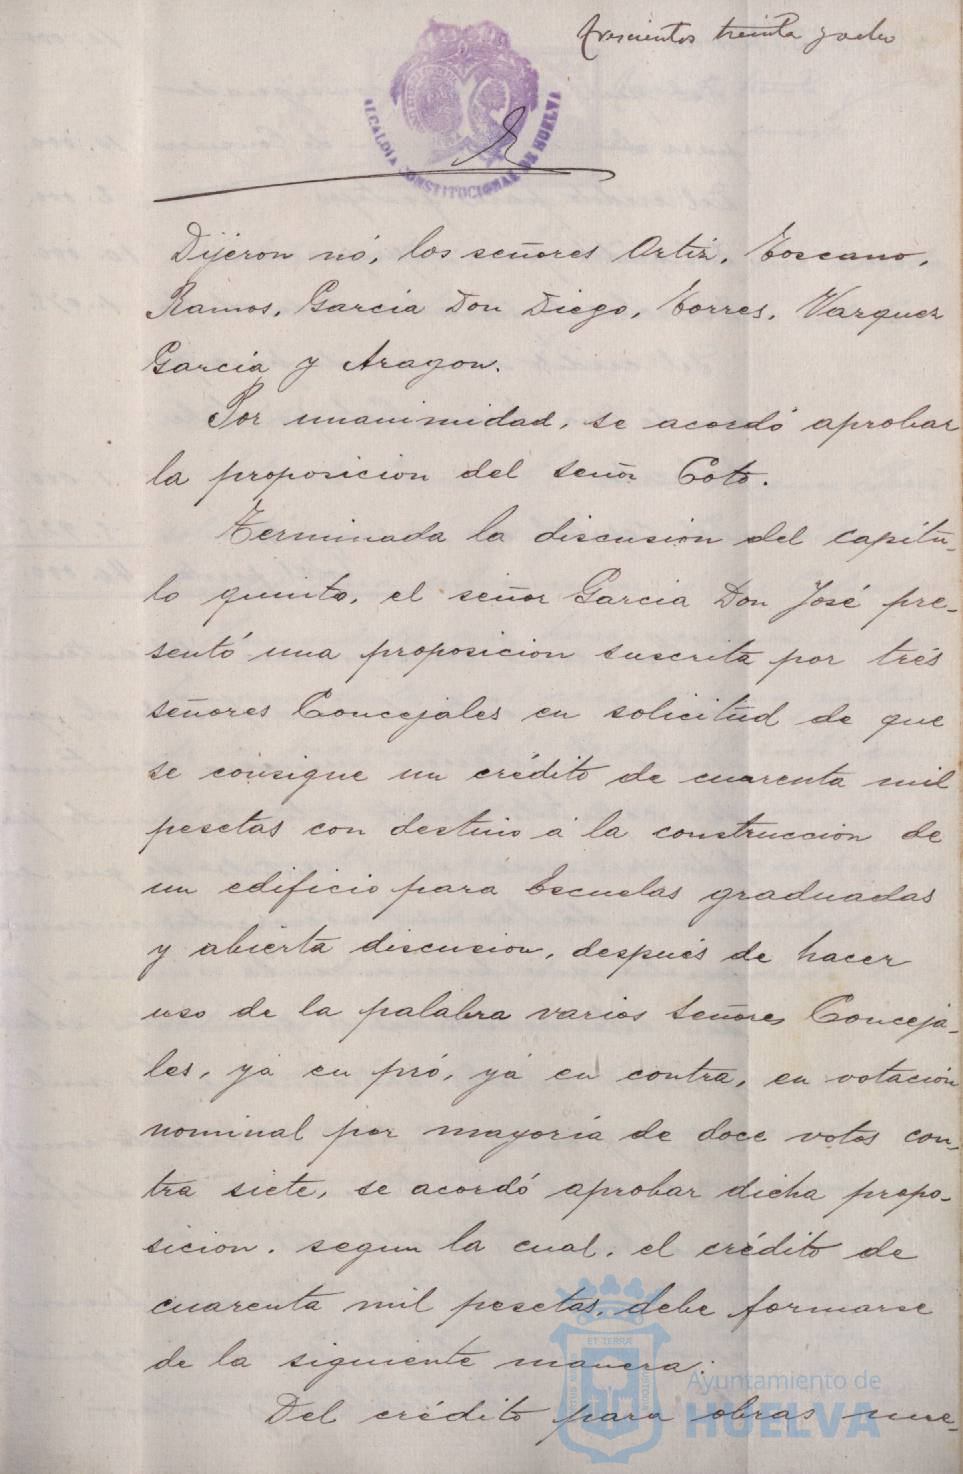 Trescientos treinta y ocho
ALCALDIA CONSTITUCIONAL DE HUELVA
Dijeron nó, los señores Ortiz, Toscano,
Ramos, Garcia Don Diego, Torres, Vazquez
Garcia y Aragon.
Por unanimidad, se acordó aprobar
la proposicion del señor Coto.
Terminada la discusion del capítu-
lo quinto, el señor Garcia Don José pre-
sentó una proposicion suscrita por trés
señores Concejales en solicitud de que
se consigne un crédito de cuarenta mil
pesetas con destino á la construccion de
un edificio para Escuelas graduadas
y abierta discusion, después de hacer
uso de la palabra varios señores Conceja-
les, yá en pró, yá en contra, en votación
nominal por mayoria de doce votos con-
tra siete, se acordó aprobar dicha propo-
sicion, segun la cual, el crédito de
cuarenta mil pesetas, debe formarse
de la siguiente manera:
Del crédito para obras nue-
Ayuntamiento de
HUELVA